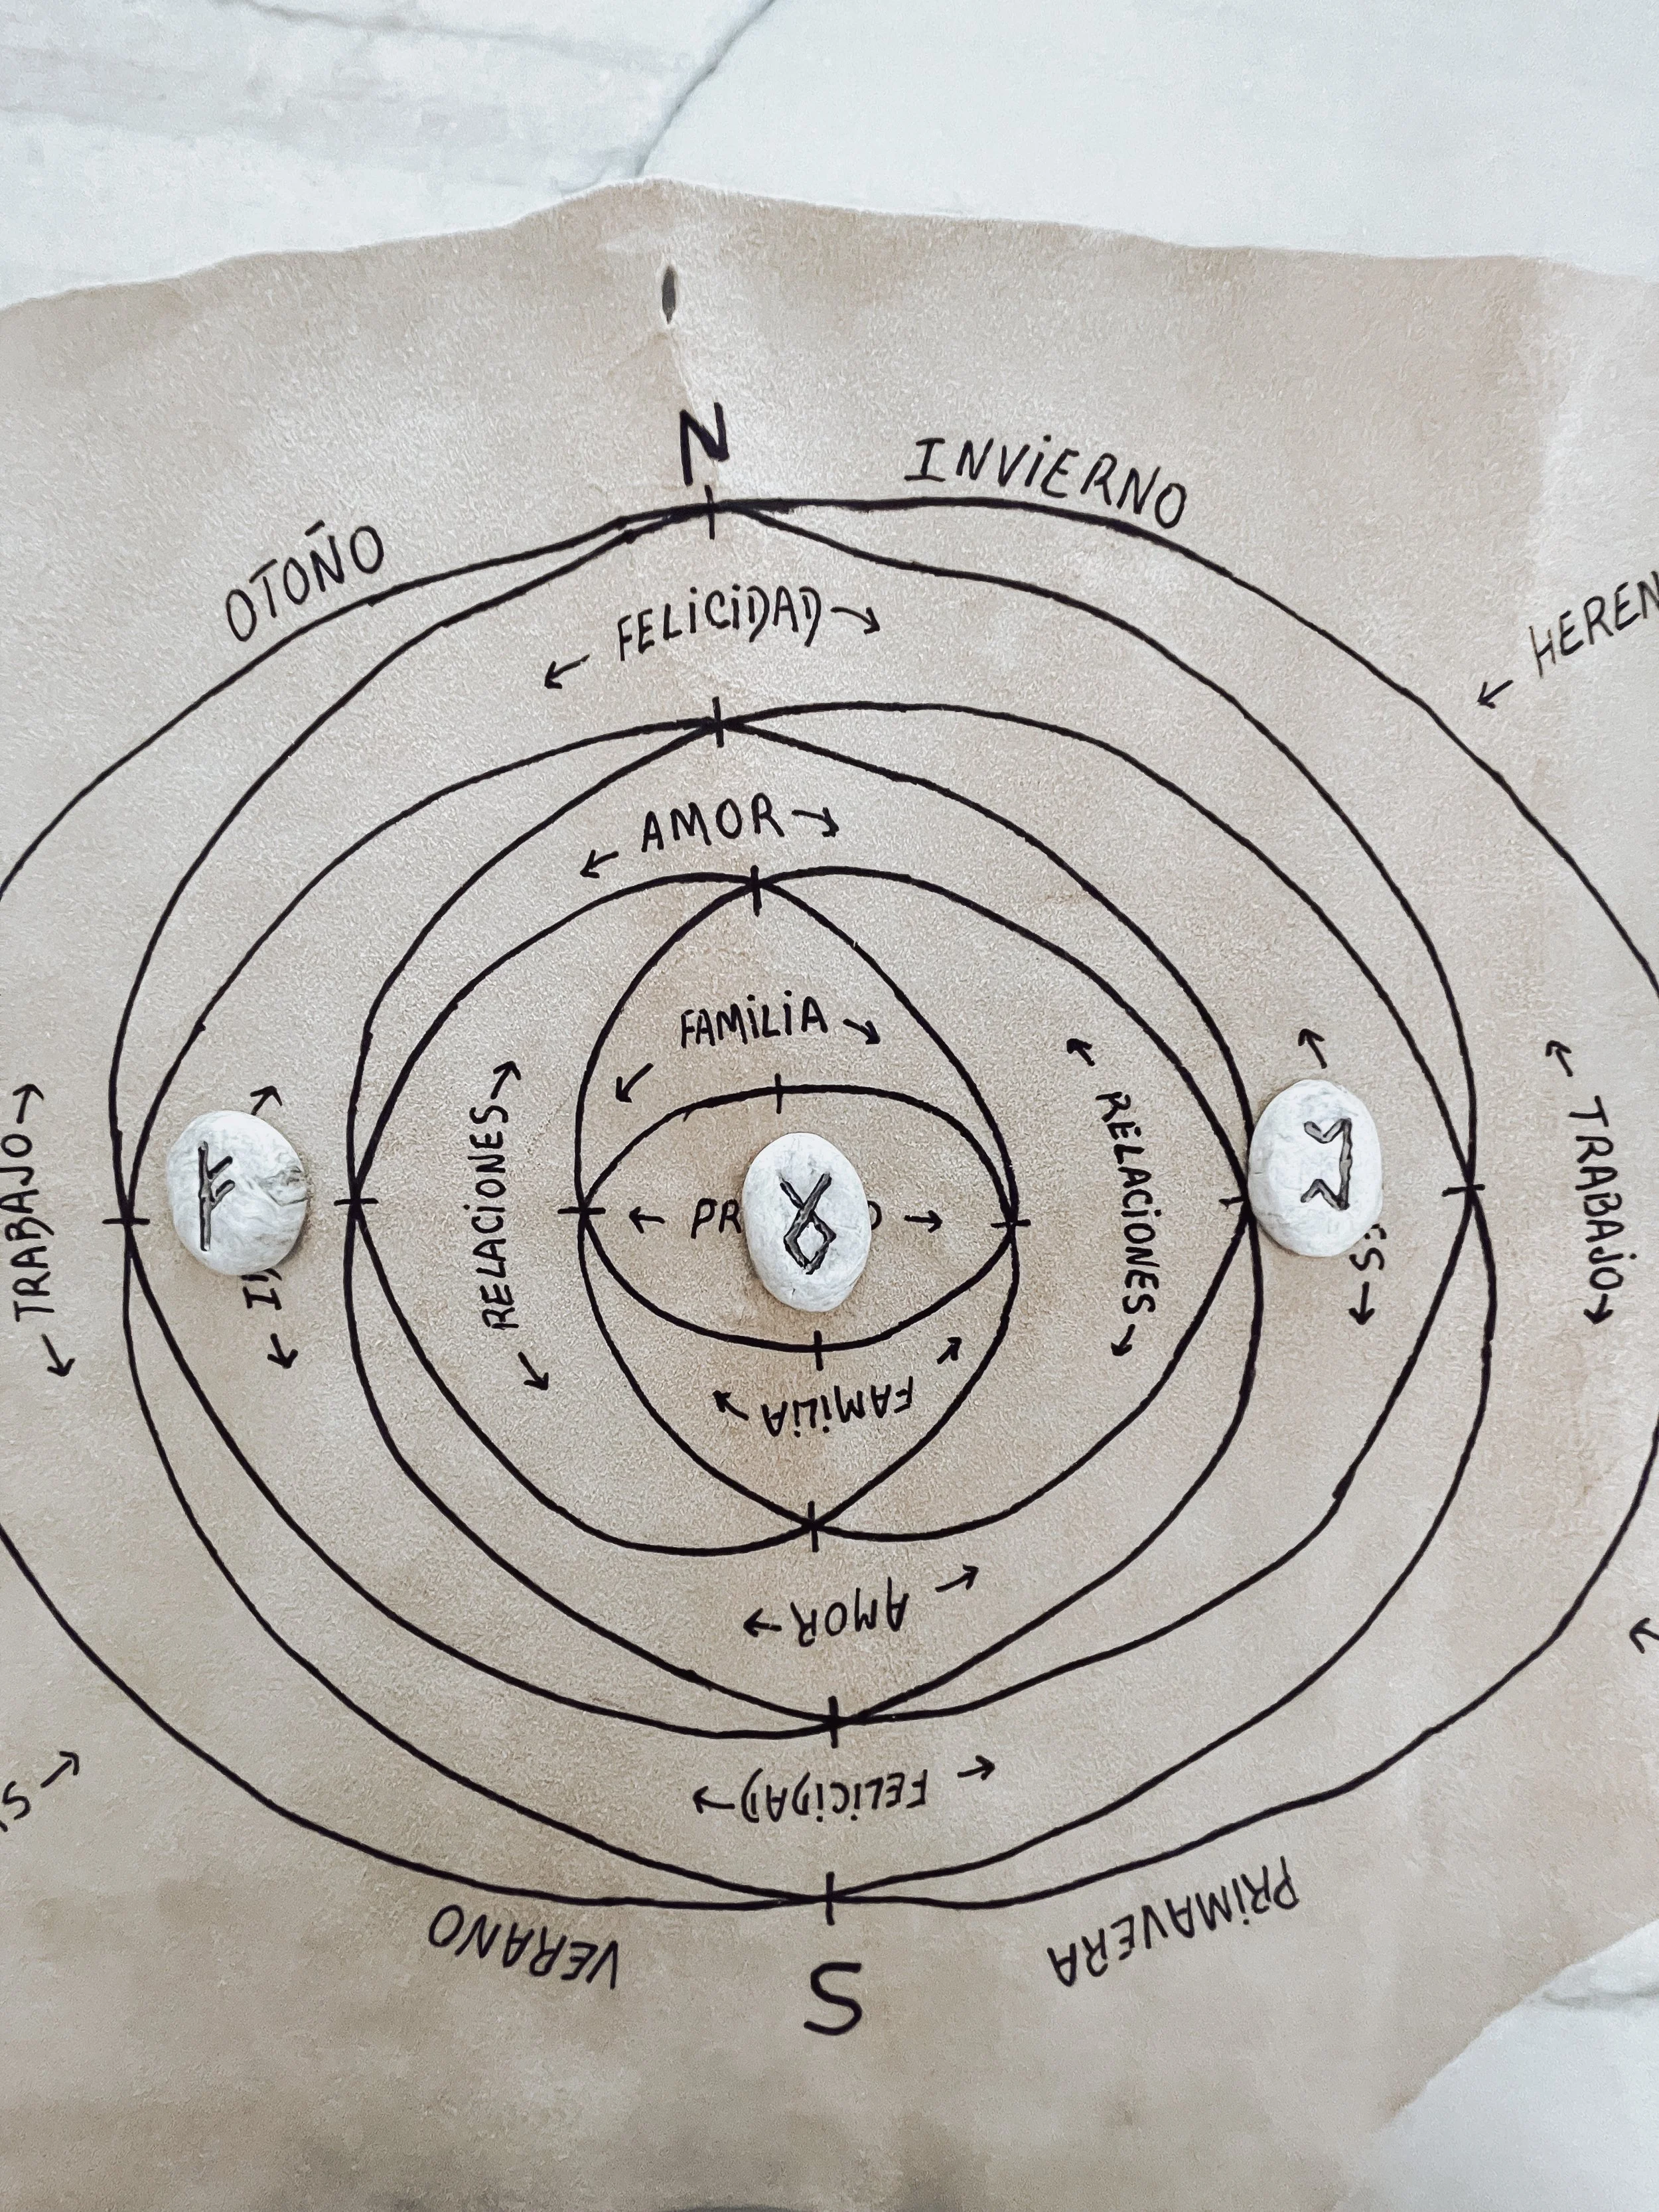 N
INVIERNO
OTOÑO
← FELICIDAD →
← HEREN
← AMOR →
← FAMILIA →
← TRABAJO →
← RELACIONES →
← PR
→
← RELACIONES →
← TRABAJO →
← FAMILIA →
← AMOR →
← FELICIDAD →
VERANO
PRIMAVERA
S